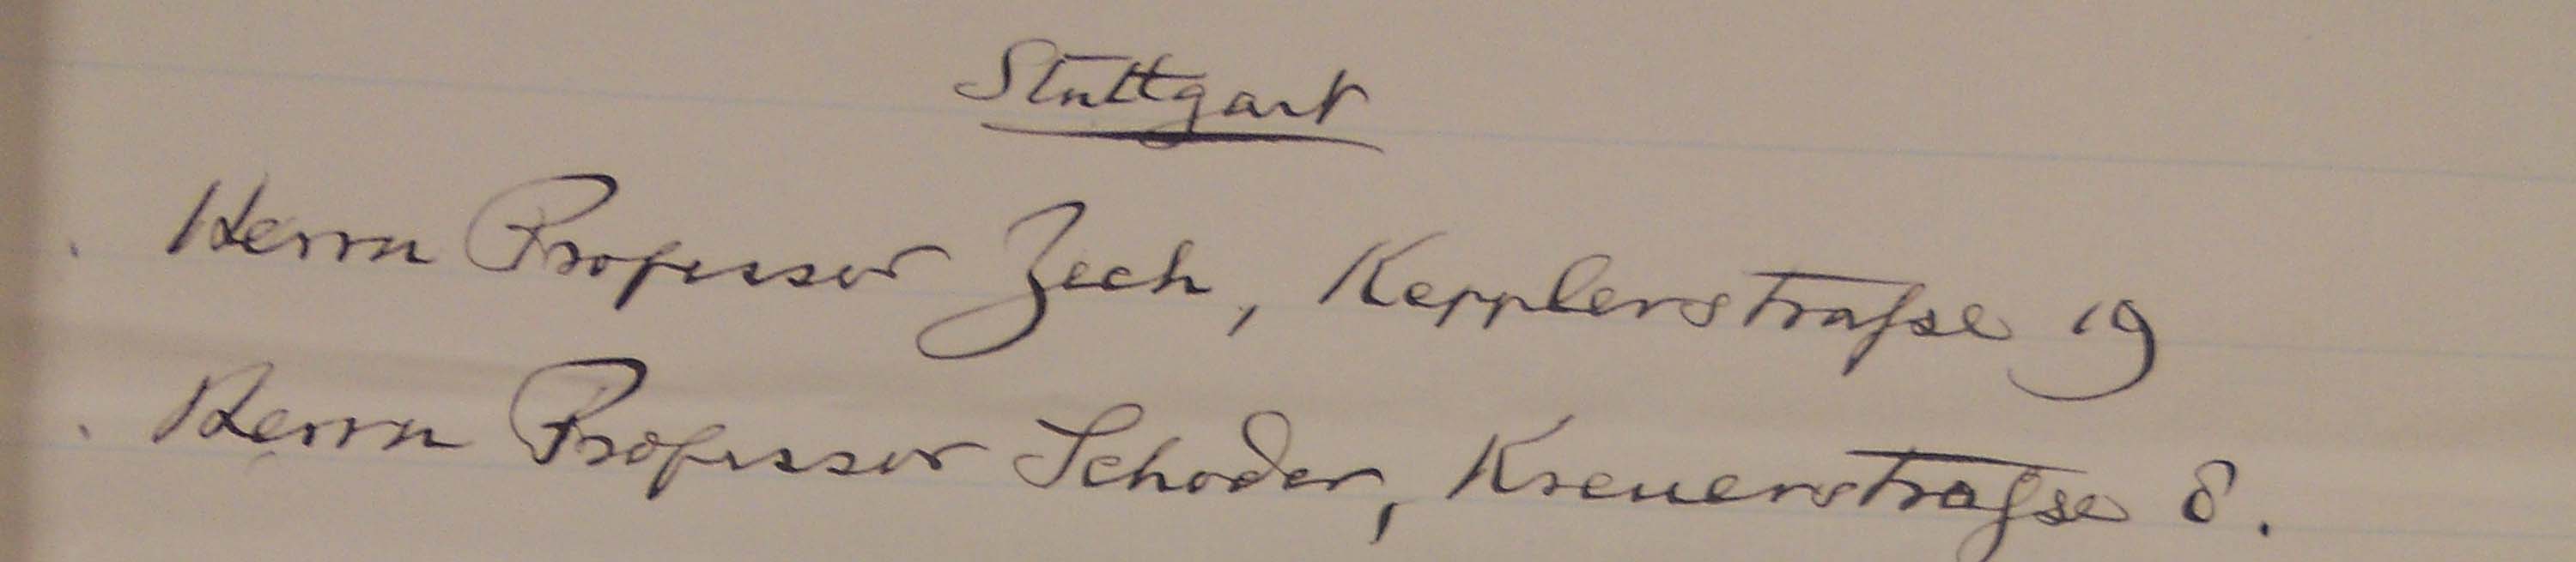 Stuttgart
Herrn Professor Zech, Kepplerstraſse 19
Herrn Professor Schoder, Kreuerstraſse 8.